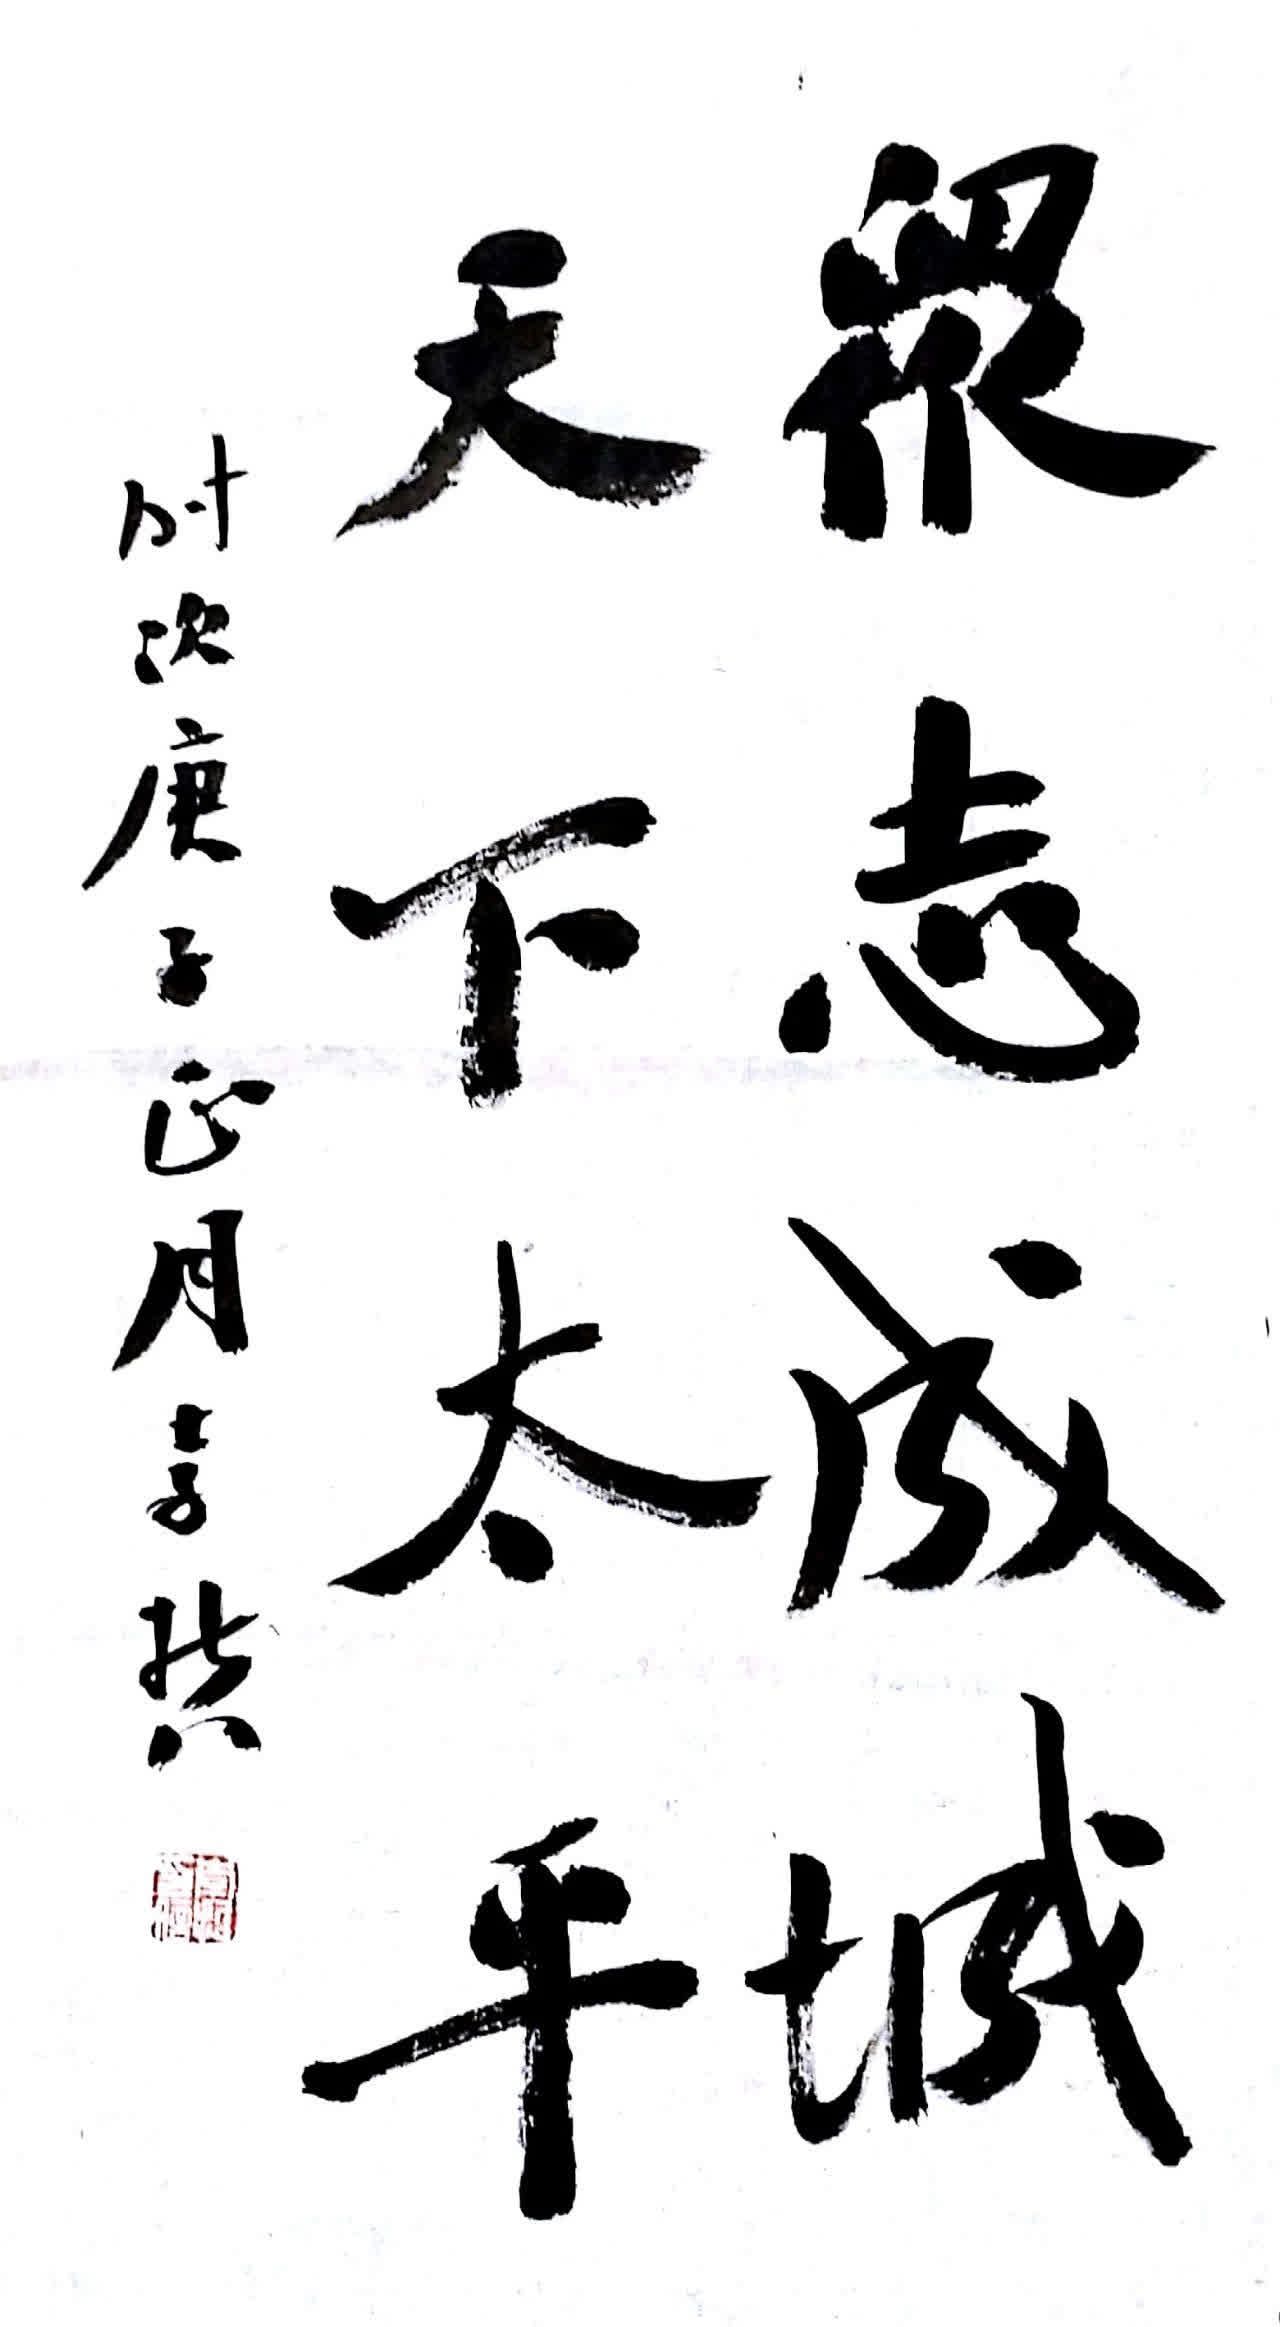 眾志成城
天下太平
时次庚子正月李